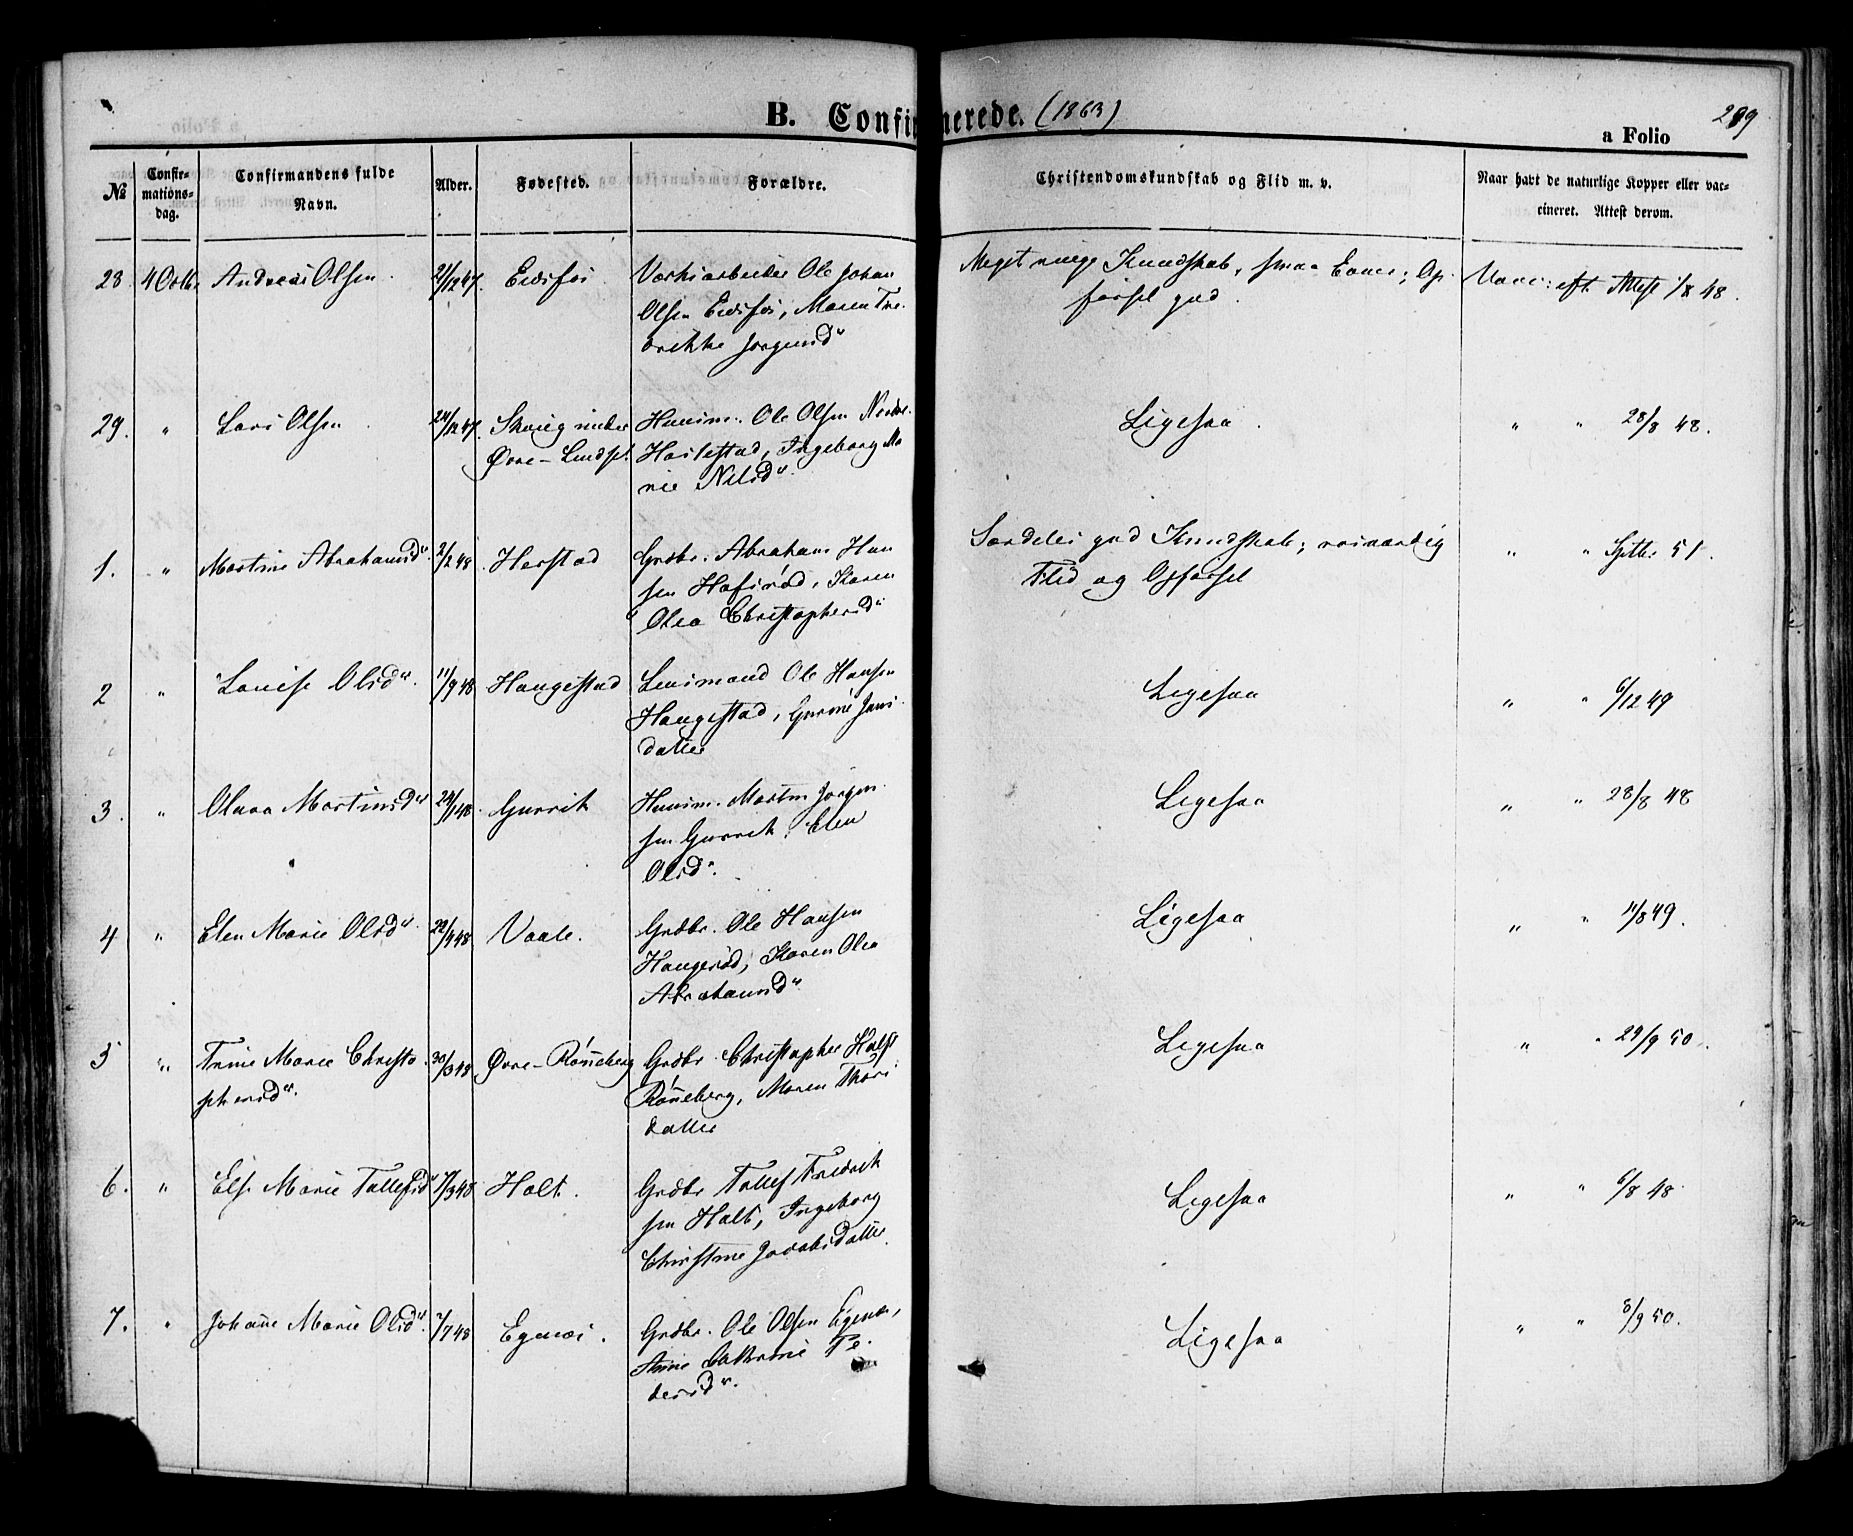 B. Confirmerede. (1863)
a Folio
289
№
Confir-
mations-
dag.
Confirmandens fulde
Navn.
Alder.
Fødested.
Forældre.
Christendomskundskab og Flid m. v.
Naar havt de naturlige Kopper eller vac-
cineret. Attest derom.
28. 4 Octb. Andreas Olsen. 21/12 47. Eidsfos Værksarbeider Ole Johan
Olsen Eidsfos, Maren Fre-
derikke Jørgensd"
Meget ringe Kundskab, smaa Evner; Op-
førsel god.
Vacc: eft. Attest 48.
29. " Lars Olsen 24/12 47. under
Øvre-
Huusm. Ole Olsen Nedre-
Hastestad, Ingeborg Ma
rie Nilsd".
Ligesaa. " " 28/8 48.
1. " Martine Abrahamsd". 2/2 48. Herstad Grdbr. Abraham Han
sen Hafsrød, Karen
Olea Christophersd"
Særdeles god Kundskab; rosværdig
Flid og Opførsel
" " Sptbr. 51.
2 " Lovise Olsd". 11/9 48 Haugestad Leensmand Ole Hansen
Haugestad, Jens-
datter
Ligesaa " " 6/12 49
3. " Olava Martinsd" 24/1 48. Gurrik Huusm. Martin Jørgen
sen Gurrik, Elen
Olsd".
Ligesaa " " 28/8 48
4 " Elen Marie Olsd". 22/4 48 Vaale. Grdbr. Ole Hansen
Haugerød, Karen Olea
Abrahamsd".
Ligesaa " " 11/8 49.
5 " Trine Marie Christo-
phersd".
30/3 48. Øvre-Rønneberg Grdbr. Christopher
Rønneberg, Maren Thors-
datter
Ligesaa " " 29/9 50.
6. " Else Marie Tollefsd" 7/9 48. Holt. Grdbr Tollef Fredrik
sen Holt, Ingeborg
Christine Jacobsdatter.
Ligesaa " " 6/8 48.
7. " Johanne Marie Olsd". 7/7 48 Egenæs. Grdbr. Ole Olsen Egenæs,
Anne Cathrine Pe-
dersd".
Ligesaa " " 8/9 50.